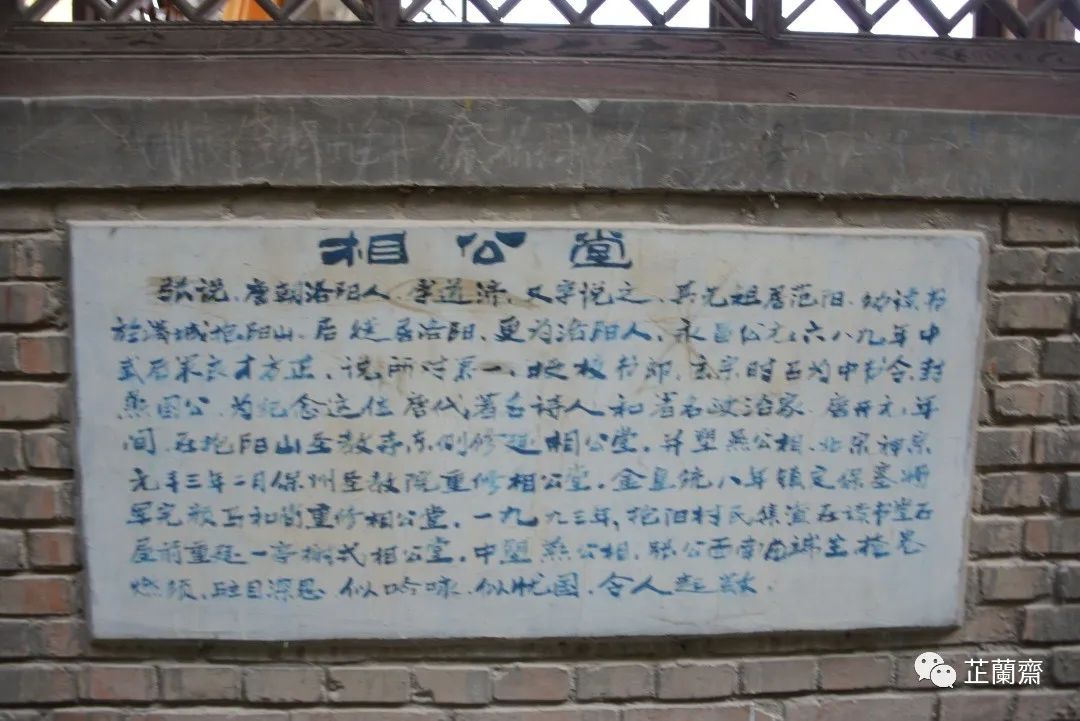 相公堂
张说、唐朝洛阳人、字道济、又字说之、其先祖居范阳、幼读书
於满城抱阳山、后徙居洛阳、更为洛阳人、永昌公元六八九年中
武后策贤才方正、说所对第一、授校书郎、玄宗时召为中书令、封
燕国公、为纪念这位唐代著名诗人和著名政治家、唐开元年
间、在抱阳山圣教寺东侧修建相公堂、并塑燕公相、北宋神宗
元丰三年二月保州圣教院重修相公堂、金皇统八年镇定保塞将
军完颜 和尚重修相公堂、一九九三年、抱阳村民集资在读书堂石
屋前重建一亭榭式相公堂、中塑燕公相、张公西南 端坐
燃须、 目深思 似吟咏、似忧国、令人起
芷蘭齋